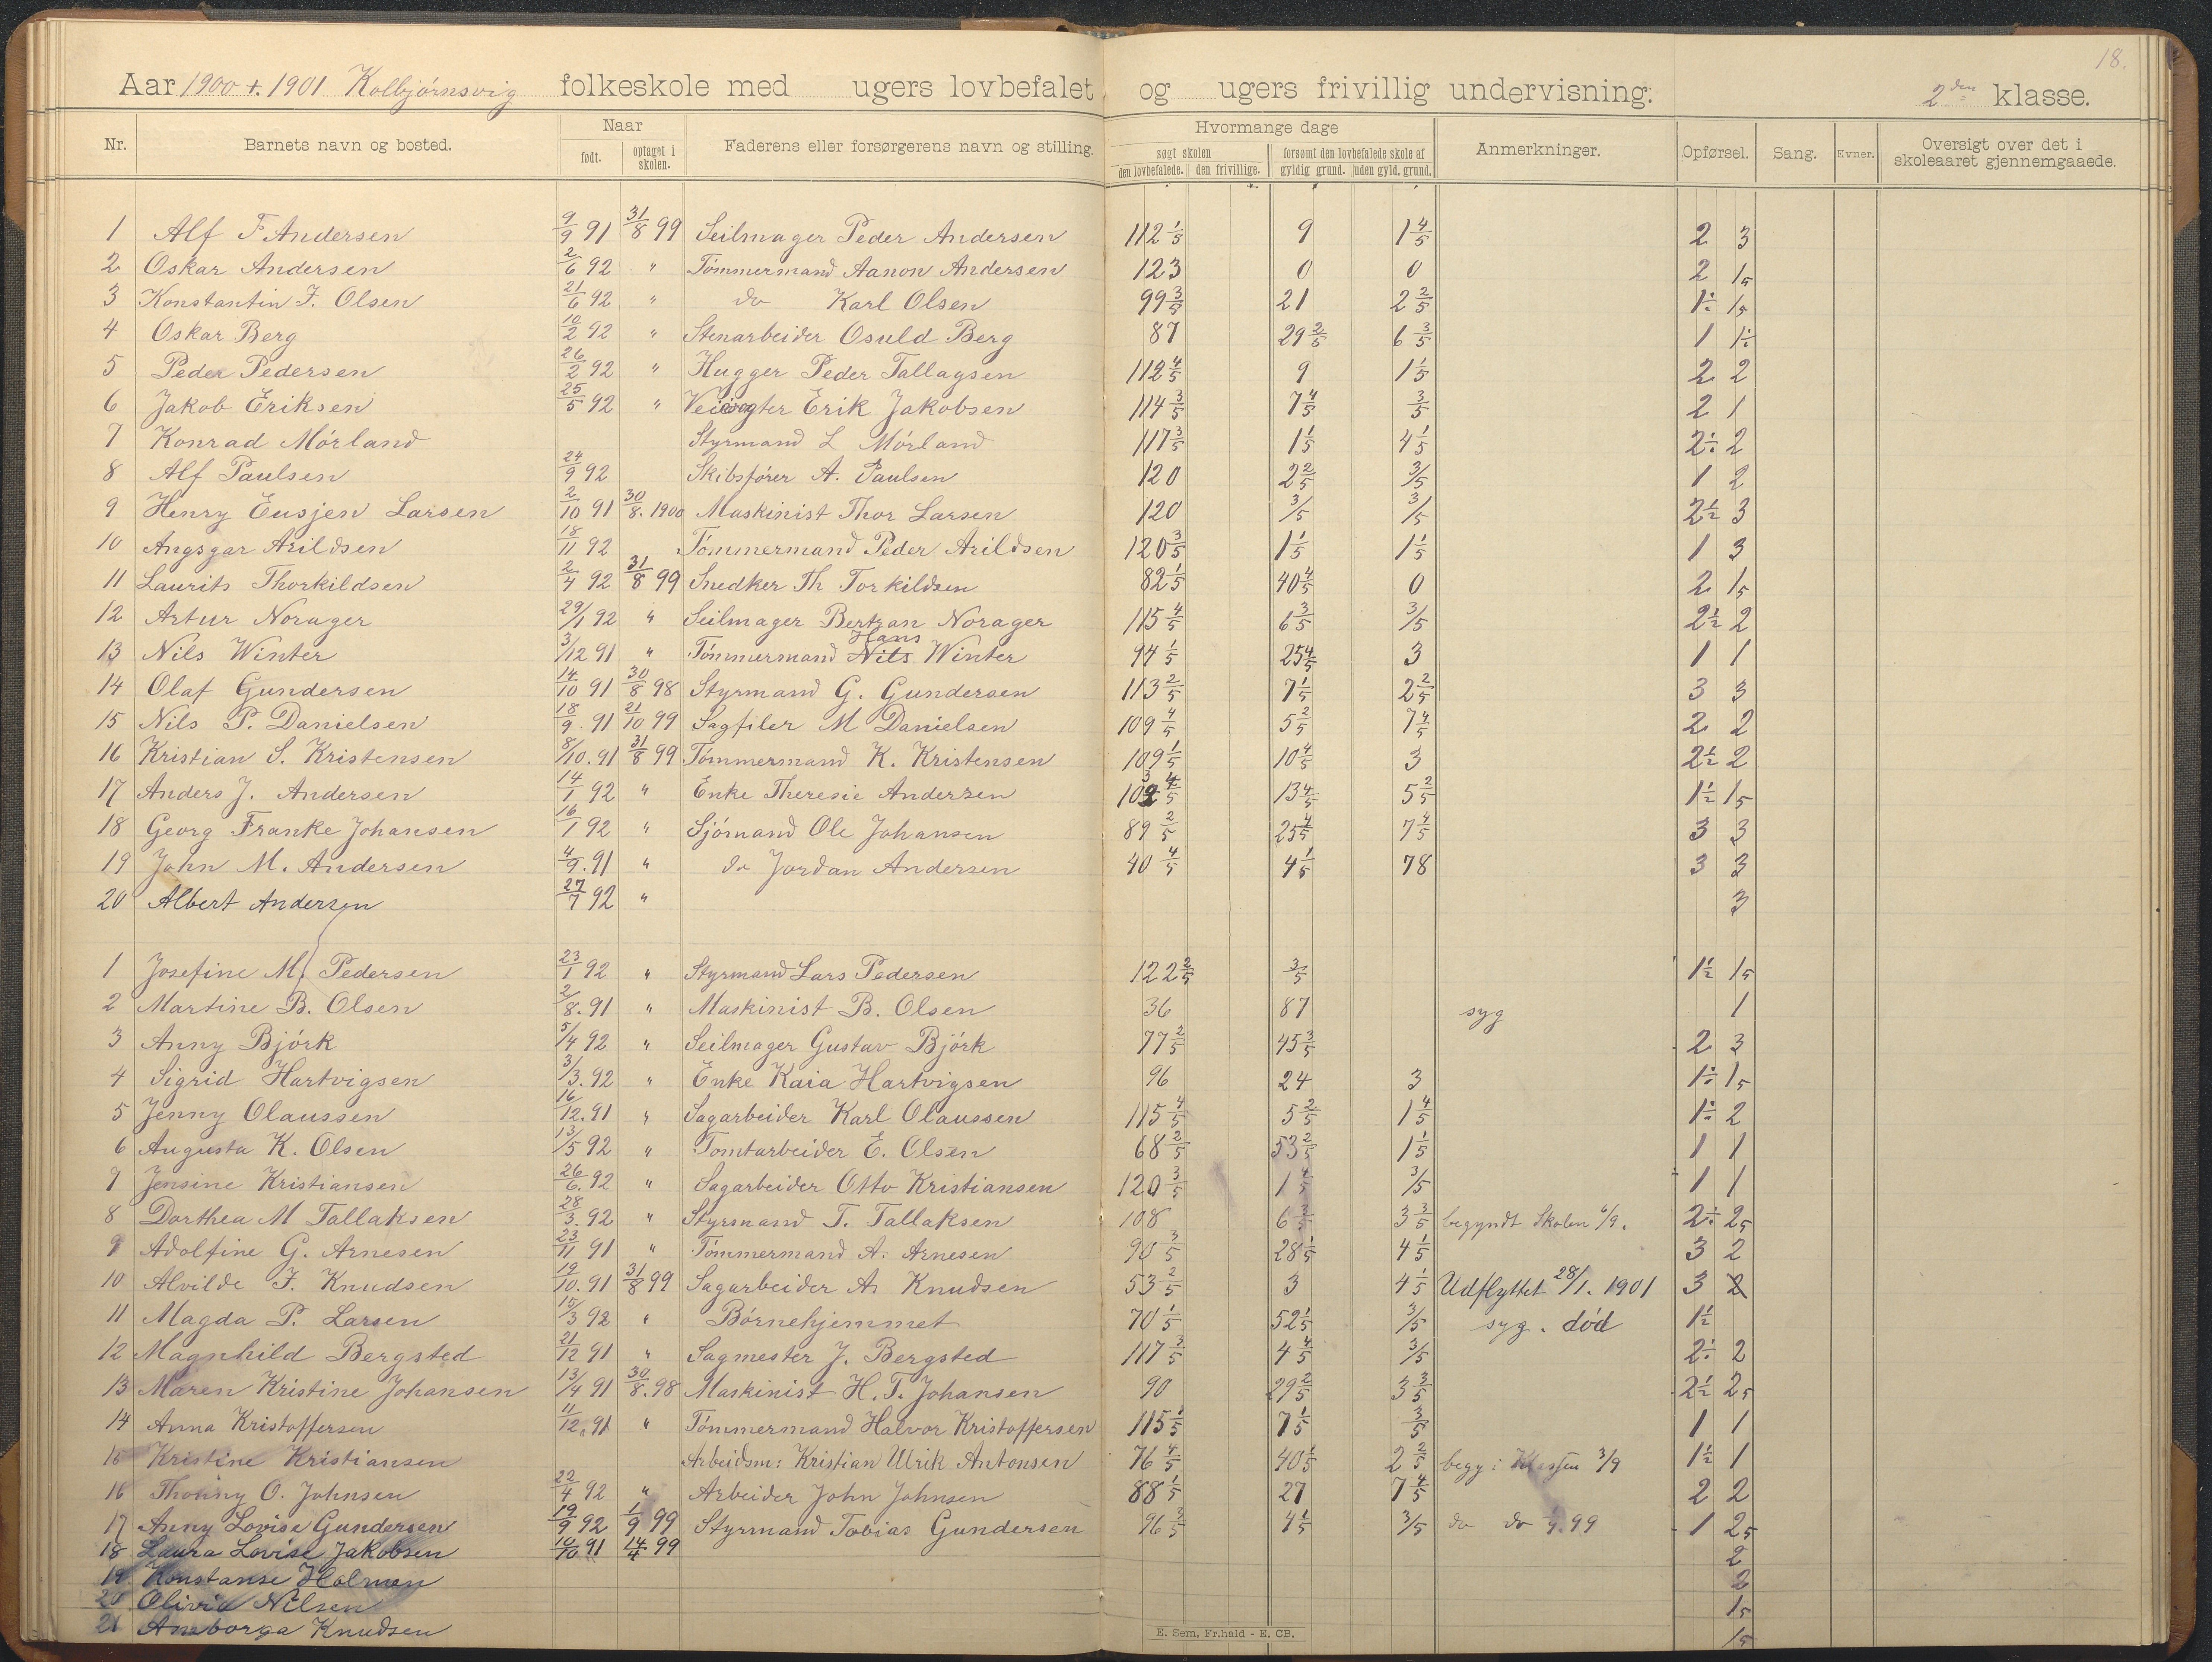 18.
Aar 1900 + 1901 Kolbjørnsvig folkeskole med ugers lovbefalet og ugers frivillig undervisning: 2den klasse.
Nr. Barnets navn og bosted. Naar født. optaget i skolen. Faderens eller forsørgerens navn og stilling. Hvormange dage søgt skolen den lovbefalede. den frivillige. forsømt den lovbefalede skole af gyldig grund. uden gyld. grund. Anmerkninger. Opførsel. Sang. Evner. Oversigt over det i skoleaaret gjennemgaaede.
1 Alf F Andersen 9/9 91 31/8 99 Seilmager Peder Andersen 112 1/5 9 1 4/5 2 3
2 Oskar Andersen 2/6 92 " Tømmermand Aanon Andersen 123 0 0 2 15
3 Konstantin F. Olsen 21/6 92 " do Karl Olsen 99 3/5 21 2 2/5 1÷ 15
4 Oskar Berg 10/2 92 " Stenarbeider Osuld Berg 87 29 2/5 6 3/5 1 1÷
5 Peder Pedersen 26/2 92 " Hugger Peder Tallagsen 112 4/5 9 1 1/5 2 2
6 Jakob Eriksen 25/5 92 " Veivogter Erik Jakobsen 114 3/5 7 4/5 3/5 2 1
7 Konrad Mørland Styrmand L Mørland 117 3/5 1 1/5 4 1/5 2÷ 2
8 Alf Paulsen 24/9 92 Skibsfører A. Paulsen 120 2 2/5 3/5 1 2
9 Henry Eusjen Larsen 2/10 91 30/8. 1900 Maskinist Thor Larsen 120 3/5 3/5 2 1/2 3
10 Angsgar Arildsen 18/11 92 Tømmermand Peder Arildsen 120 3/5 1 1/5 1 1/5 1 3
11 Laurits Thorkildsen 2/4 92 31/8 99 Snedker Th Torkildsen 82 1/5 40 4/5 0 2 15
12 Artur Norager 29/1 92 " Seilmager Bertran Norager 115 4/5 6 3/5 3/5 2 1/2 2
13 Nils Winter 3/12 91 " Tømmermand Nils Hans Winter 94 1/5 25 4/5 3 1 1
14 Olaf Gundersen 14/10 91 30/8 98 Styrmand G. Gundersen 113 2/5 7 1/5 2 2/5 3 3
15 Nils P. Danielsen 18/9. 91 21/10 99 Sagfiler M Danielsen 109 4/5 5 2/5 7 4/5 2 2
16 Kristian S. Kristensen 8/10. 91 31/8 99 Tømmermand K. Kristensen 109 1/5 10 4/5 3 2 1/2 2
17 Anders J. Andersen 14/1 92 " Enke Theresie Andersen 103 4/5 13 4/5 5 2/5 1 1/2 15
18 Georg Franke Johansen 16/1 92 " Sjømand Ole Johansen 89 2/5 25 4/5 7 4/5 3 3
19 John M. Andersen 4/9. 91 " do Jordan Andersen 40 4/5 4 1/5 78 3 3
20 Albert Andersen 27/7 92 " 3
1 Josefine M Pedersen 23/1 92 " Styrmand Lars Pedersen 122 2/5 3/5 1 1/2 15
2 Martine B. Olsen 2/8. 91 " Maskinist B. Olsen 36 87 syg 1
3 Anny Bjørk 5/4 92 " Seilmager Gustav Bjørk 77 2/5 45 3/5 2 3
4 Sigrid Hartvigsen 3/3. 92 " Enke Kaia Hartvigsen 96 24 3 1÷ 15
5 Jenny Olaussen 16/12. 91 " Sagarbeider Karl Olaussen 115 4/5 5 2/5 1 4/5 1÷ 2
6 Augusta K. Olsen 13/5 92 " Tomtarbeider E. Olsen 68 2/5 53 2/5 1 1/5 1 1
7 Jensine Kristiansen 26/6. 92 " Sagarbeider Otto Kristiansen 120 3/5 1 4/5 3/5 1 1
8 Dorthea M Tallaksen 28/3. 92 " Styrmand T. Tallaksen 108 6 3/5 3 3/5 begyndt Skolen 6/9. 2÷ 25
9 Adolfine G. Arnesen 23/11 91 " Tømmermand A. Arnesen 90 3/5 28 1/5 4 1/5 3 2
10 Alvilde F. Knudsen 19/10. 91 31/8 99 Sagarbeider A. Knudsen 53 2/5 3 4 1/5 Udflyttet 28/1. 1901 3 2
11 Magda P. Larsen 15/3 92 " Børnehjemmet 70 1/5 52 1/5 3/5 syg. død 1 1/2
12 Magnhild Bergsted 21/12 91 " Sagmester J. Bergsted 117 3/5 4 4/5 3/5 2÷ 2
13 Maren Kristine Johansen 13/4 91 30/8. 98 Maskinist H. T. Johansen 90 29 2/5 3 3/5 2 1/2 25
14 Anna Kristoffersen 11/12. 91 " Tømmermand Halvor Kristoffersen 115 1/5 7 1/5 3/5 1 1
15 Kristine Kristiansen Arbeidsm: Kristian Ulrik Antonsen 76 4/5 40 1/5 2 2/5 begy i Klassen 3/9 1 1/2 1
16 Thonny O. Johnsen 22/4 92 " Arbeider John Johnsen 88 1/5 27 7 4/5 2 2
17 Anny Lovise Gundersen 19/9 92 1/9 99 Styrmand Tobias Gundersen 96 3/5 4 1/5 3/5 do do 99 1 25
18 Laura Lovise Jakobsen 10/10 91 14/4 99 2
19. Konstanse Holmen 2
20 Olivia Nilsen 15
21 Knudsen 15
E. Sem, Fr.hald - E. CB.